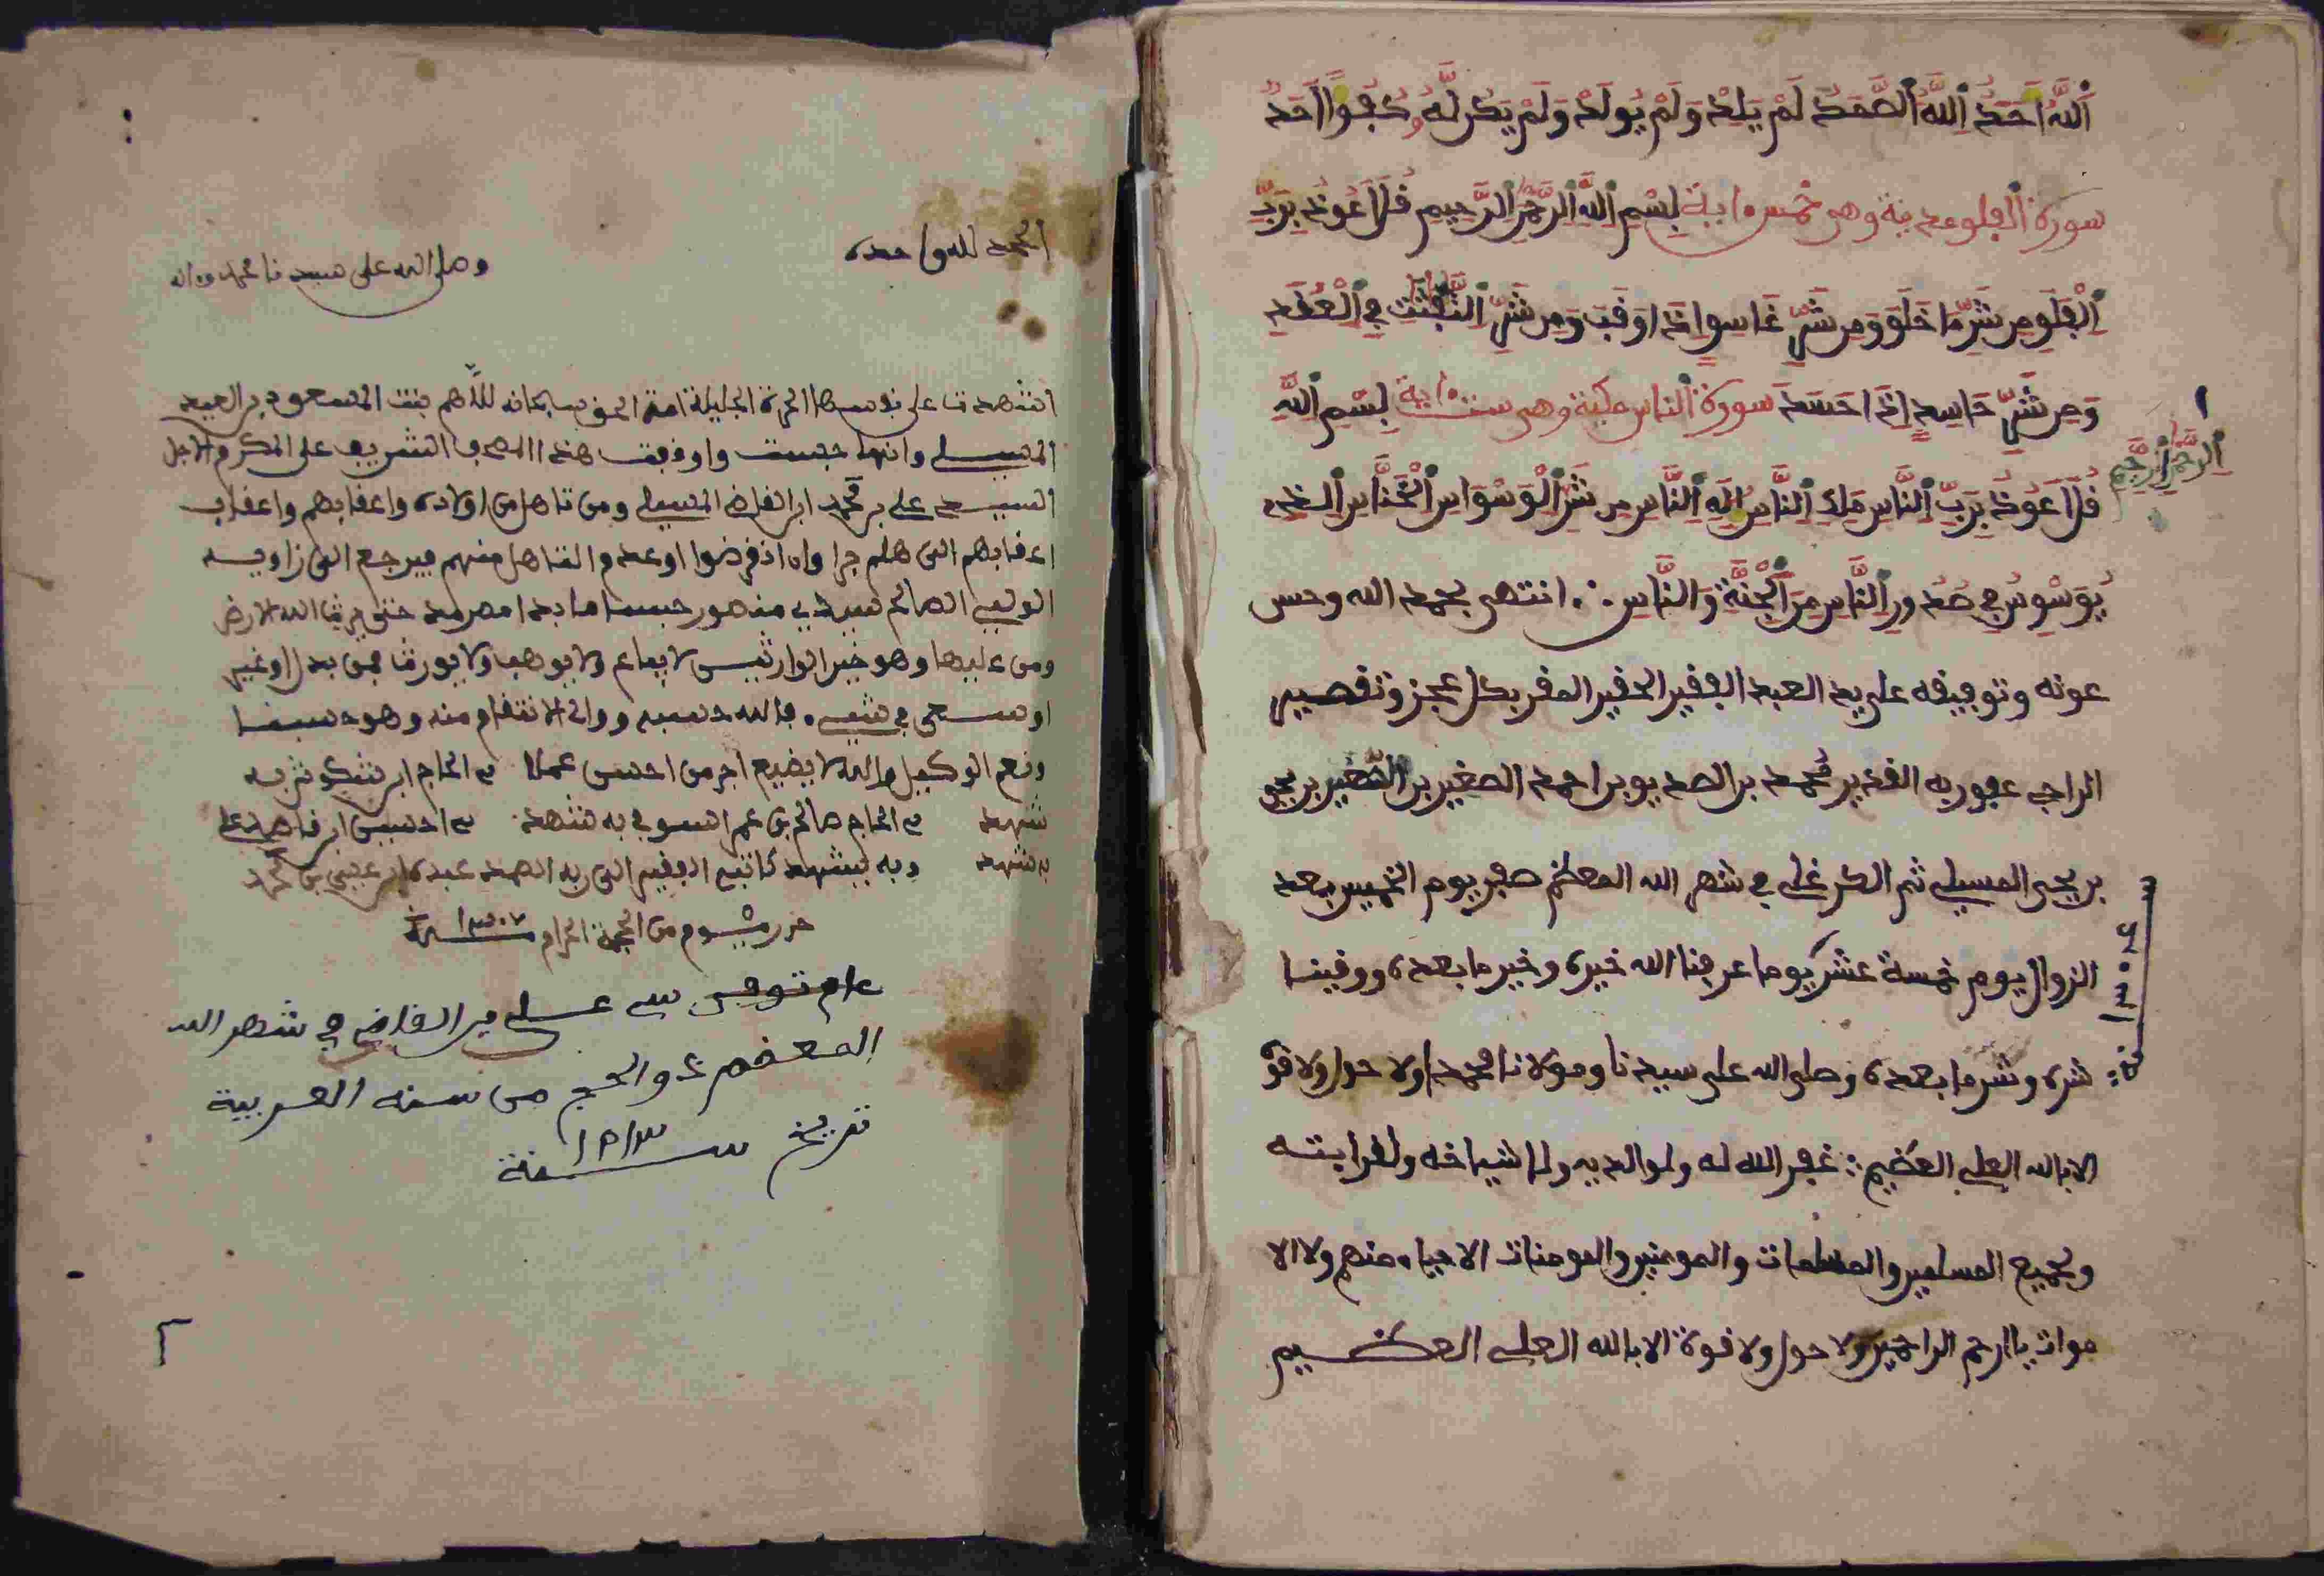 اَللَّهُ أَحَدٌ اَللَّهُ اَلصَّمَدُ لَمْ يَلِدْ وَلَمْ يُولَدْ وَلَمْ يَكُن لَّهُۥ كُفُوًا اَحَدٌ
سورة الفلق مدنية وهي خمس ءاية بِسْمِ اِللَّهِ اِلرَّحْمَٰنِ اِلرَّحِيمِ قُلَ اَعُوذُ بِرَبِّ
اِلْفَلَقِ مِن شَرِّ مَا خَلَقَ وَمِن شَرِّ غَاسِقٍ اِذَا وَقَبَ وَمِن شَرِّ اِلنَّفَّٰثَٰتِ فِي اِلْعُقَدِ
وَمِن شَرِّ حَاسِدٍ اِذَا حَسَدَ سورة الناس مكية وهي ست ءاية بِسْمِ اِللَّهِ
اِلرَّحْمَٰنِ اِلرَّحِيمِ
قُلَ اَعُوذُ بِرَبِّ اِلنَّاسِ مَلِكِ اِلنَّاسِ إِلَٰهِ اِلنَّاسِ مِن شَرِّ اِلْوَسْوَاسِ اِلْخَنَّاسِ اِلذِے
يُوَسْوِسُ فِي صُدُورِ اِلنَّاسِ مِنَ اَلْجِنَّةِ وَالنَّاسِ ∴ انتهى بحمد الله وحسن
عونه وتوفيقه على يد العبد الفقير الحقير المقر بكل عجز وتقصير
الراجي عفو ربه القدير محمد بن الصديق بن احمد الصغير بن الصَّغير بن يحيى
بن يحيى المسيلي ثم الكرغلي في شهر الله المعظم صفر يوم الخميس بعد
الزوال يوم خمسة عشر يوما عرفنا الله خيره وخير ما بعده ووقينا
سنة ١٣٠٤
شره وشر ما بعده وصلى الله على سيدنا ومولانا محمد ولا حول ولا قوة
الا بالله العلي العظيم : غفر الله له ولوالديه ولاشياخه ولقرابته
ولجميع المسلمين والمسلمات والمومنين والمومنات الاحياء منهم ولا الا
موات يا ارحم الراحمين ولا حول ولا قوة الا بالله العلي العظيم
الحمد لله واحده
وصلى الله على سيدنا محمد وءاله
اشهدت على نفسها الحرة الجليلة امة الحق سبحانه للاهم بنت المسعود بن العبيد
المسيلي وانها حبست واوقفت هذا المصحف الشريف على المكرم الاجل
السيد علي بن محمد ابن القاضي المسيلي ومن تاهل من اولاده واعقابهم واعقاب
اعقابهم الى هلم جرا وان انقرضوا او عدم التاهل منهم فيرجع الى زاوية
الولي الصالح سيدي منصور حبسا مابدا مصرمدا حتى يرث الله الارض
ومن عليها وهو خير الوارثين لا يباع ولا يوهب ولا يورث فمن بدل او غير
او سعى في شيء فالله حسيبه ووالي الانتقام منه وهو حسبنا
ونعم الوكيل والله لا يضيع اجر من احسن عملا سي الحاج ابن
شهد سي الحاج صالح بن عمر السوفي به شهد سي احسين ابن
به شهد وبه يشهد كاتبه الفقير الى ربه الصمد عبده ابن عيسى بن محمد
حرر من الحجة الحرام ١٣٠٧ سنة
عام توفى سي علي بن القاضي في شهر الله
المعضم ذو الحج من سنه العربية
تريخ ١٣١٢ سنة
٢